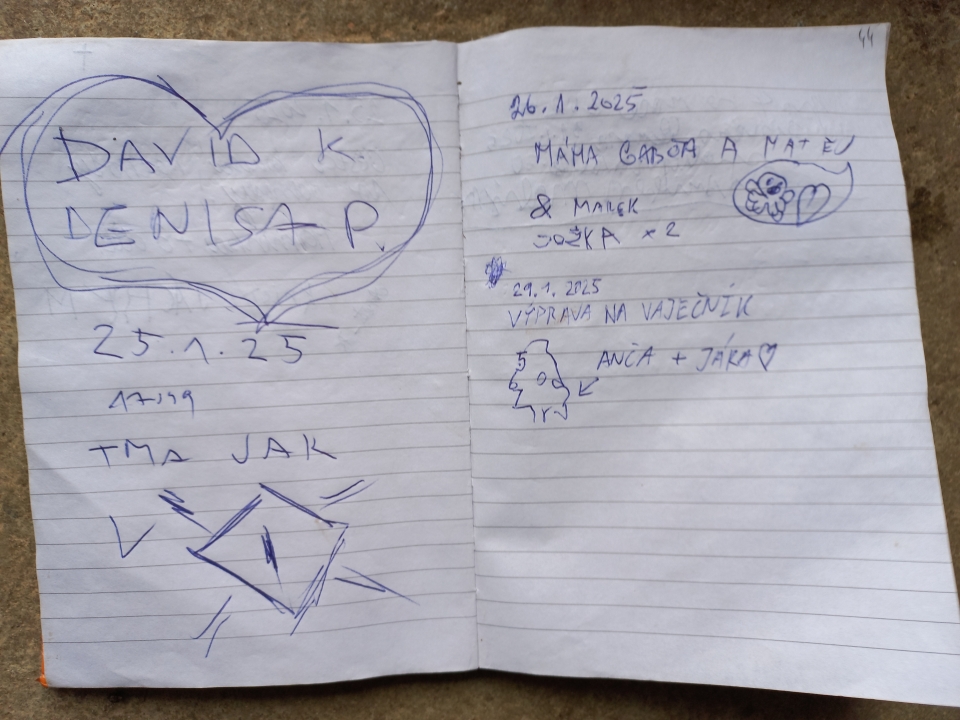 DAVID K.
DENISA P.
25.1.25
TMA JAK
V
44
26.1.2025
MÁMA GABČA A MATĚJ
& MAREK
JOŽKA x2
29.1.2025
VÝPRAVA NA VAJEČNÍK
ANČA + JÁRA